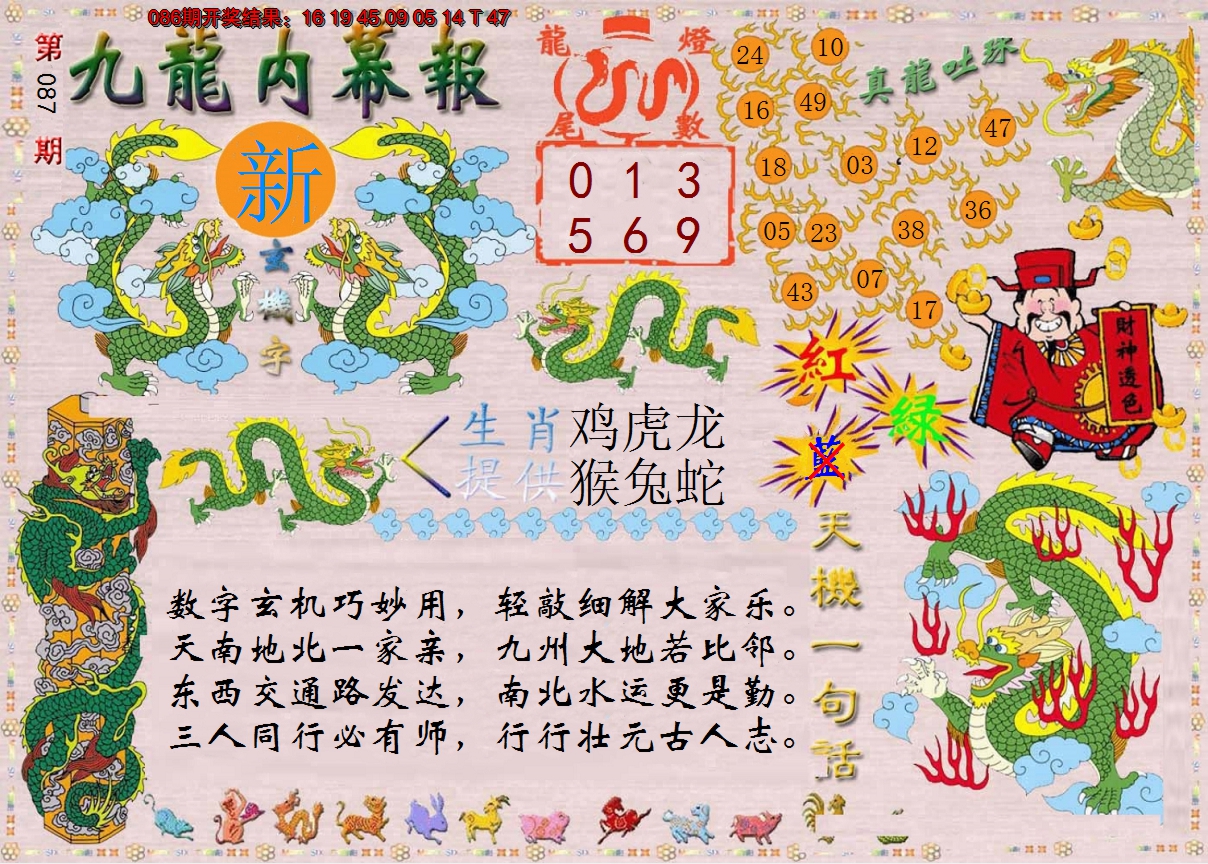 086期开奖结果：16 19 45 09 05 14 T 47
第087期
九龍内幕報
新
玄機字
龍燈
尾數
0 1 3
5 6 9
真龍吐珠
24 10
16 49
18 03 12 47
05 23 38 36
43 07 17
財神透色
紅
綠
藍
生肖 鸡虎龙
提供 猴兔蛇
数字玄机巧妙用，轻敲细解大家乐。
天南地北一家亲，九州大地若比邻。
东西交通路发达，南北水运更是勤。
三人同行必有师，行行壮元古人志。
天機一句話